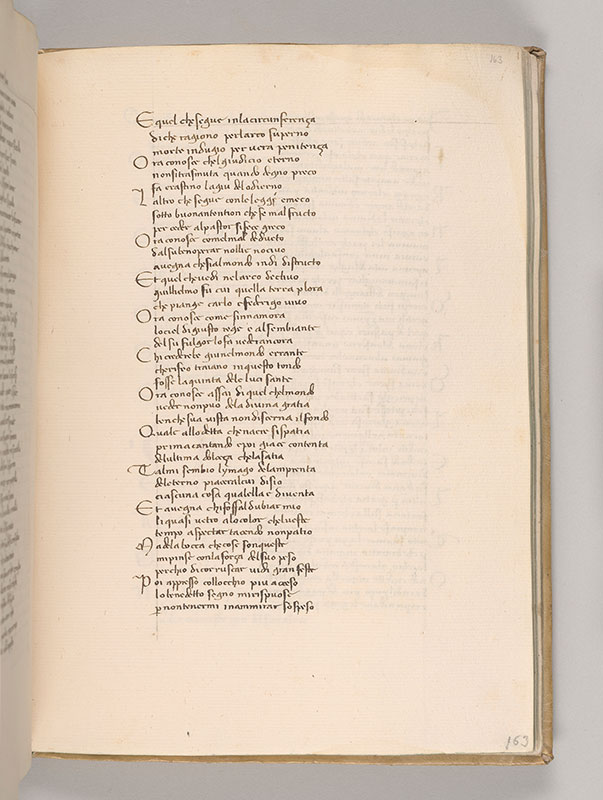 163
E quel che segue inla circunferença
di che ragiono per larco superno
morte indugio per vera penitença
O ra conosce chel giudicio eterno
non si trasmuta quando degno preco
fa crastino la giu del odierno
L altro che segue con le leggi e meco
sotto buona ntention che fe mal fructo
per ceder al pastor si fece greco
O ra conosce comel mal deducto
dal suben operar no lli e nocivo
avegna che sial mondo indi distructo
E t quel che vedi ne larco declivo
guilhelmo fu cui quella terra plora
che piange carlo e fedrigo vivo
O ra conosce come sinnamora
lo ciel di giusto rege e al sembiante
del su fulgor lo fa vedera ncora
C hi crederebe giu nel mondo errante
che rifeo traiano in questo tondo
fosse la quinta dele luci sante
O ra conosce assai di quel chel mondo
veder non puo dela divina gratia
ben che sua vista non discerna il fondo
Q uale allodetta che naere si spatia
prima cantando e poi giace contenta
del ultima dolceça che la satia
T al mi sembio lymago dela mprenta
del eterno piacer al cui disio
ciascuna cosa qual ella e diventa
E t avegna chi fossal dubiar mio
li quasi vetro alo color chel veste
tempo aspectar tacendo non patio
M a dela bocca che cose son queste
mi pinse con la força del suo peso
per chio di corruscar vidi gran feste
P oi appresso collocchio piu acceso
lo benedetto segno mi rispuose
p non tenermi in ammirar sospeso
163